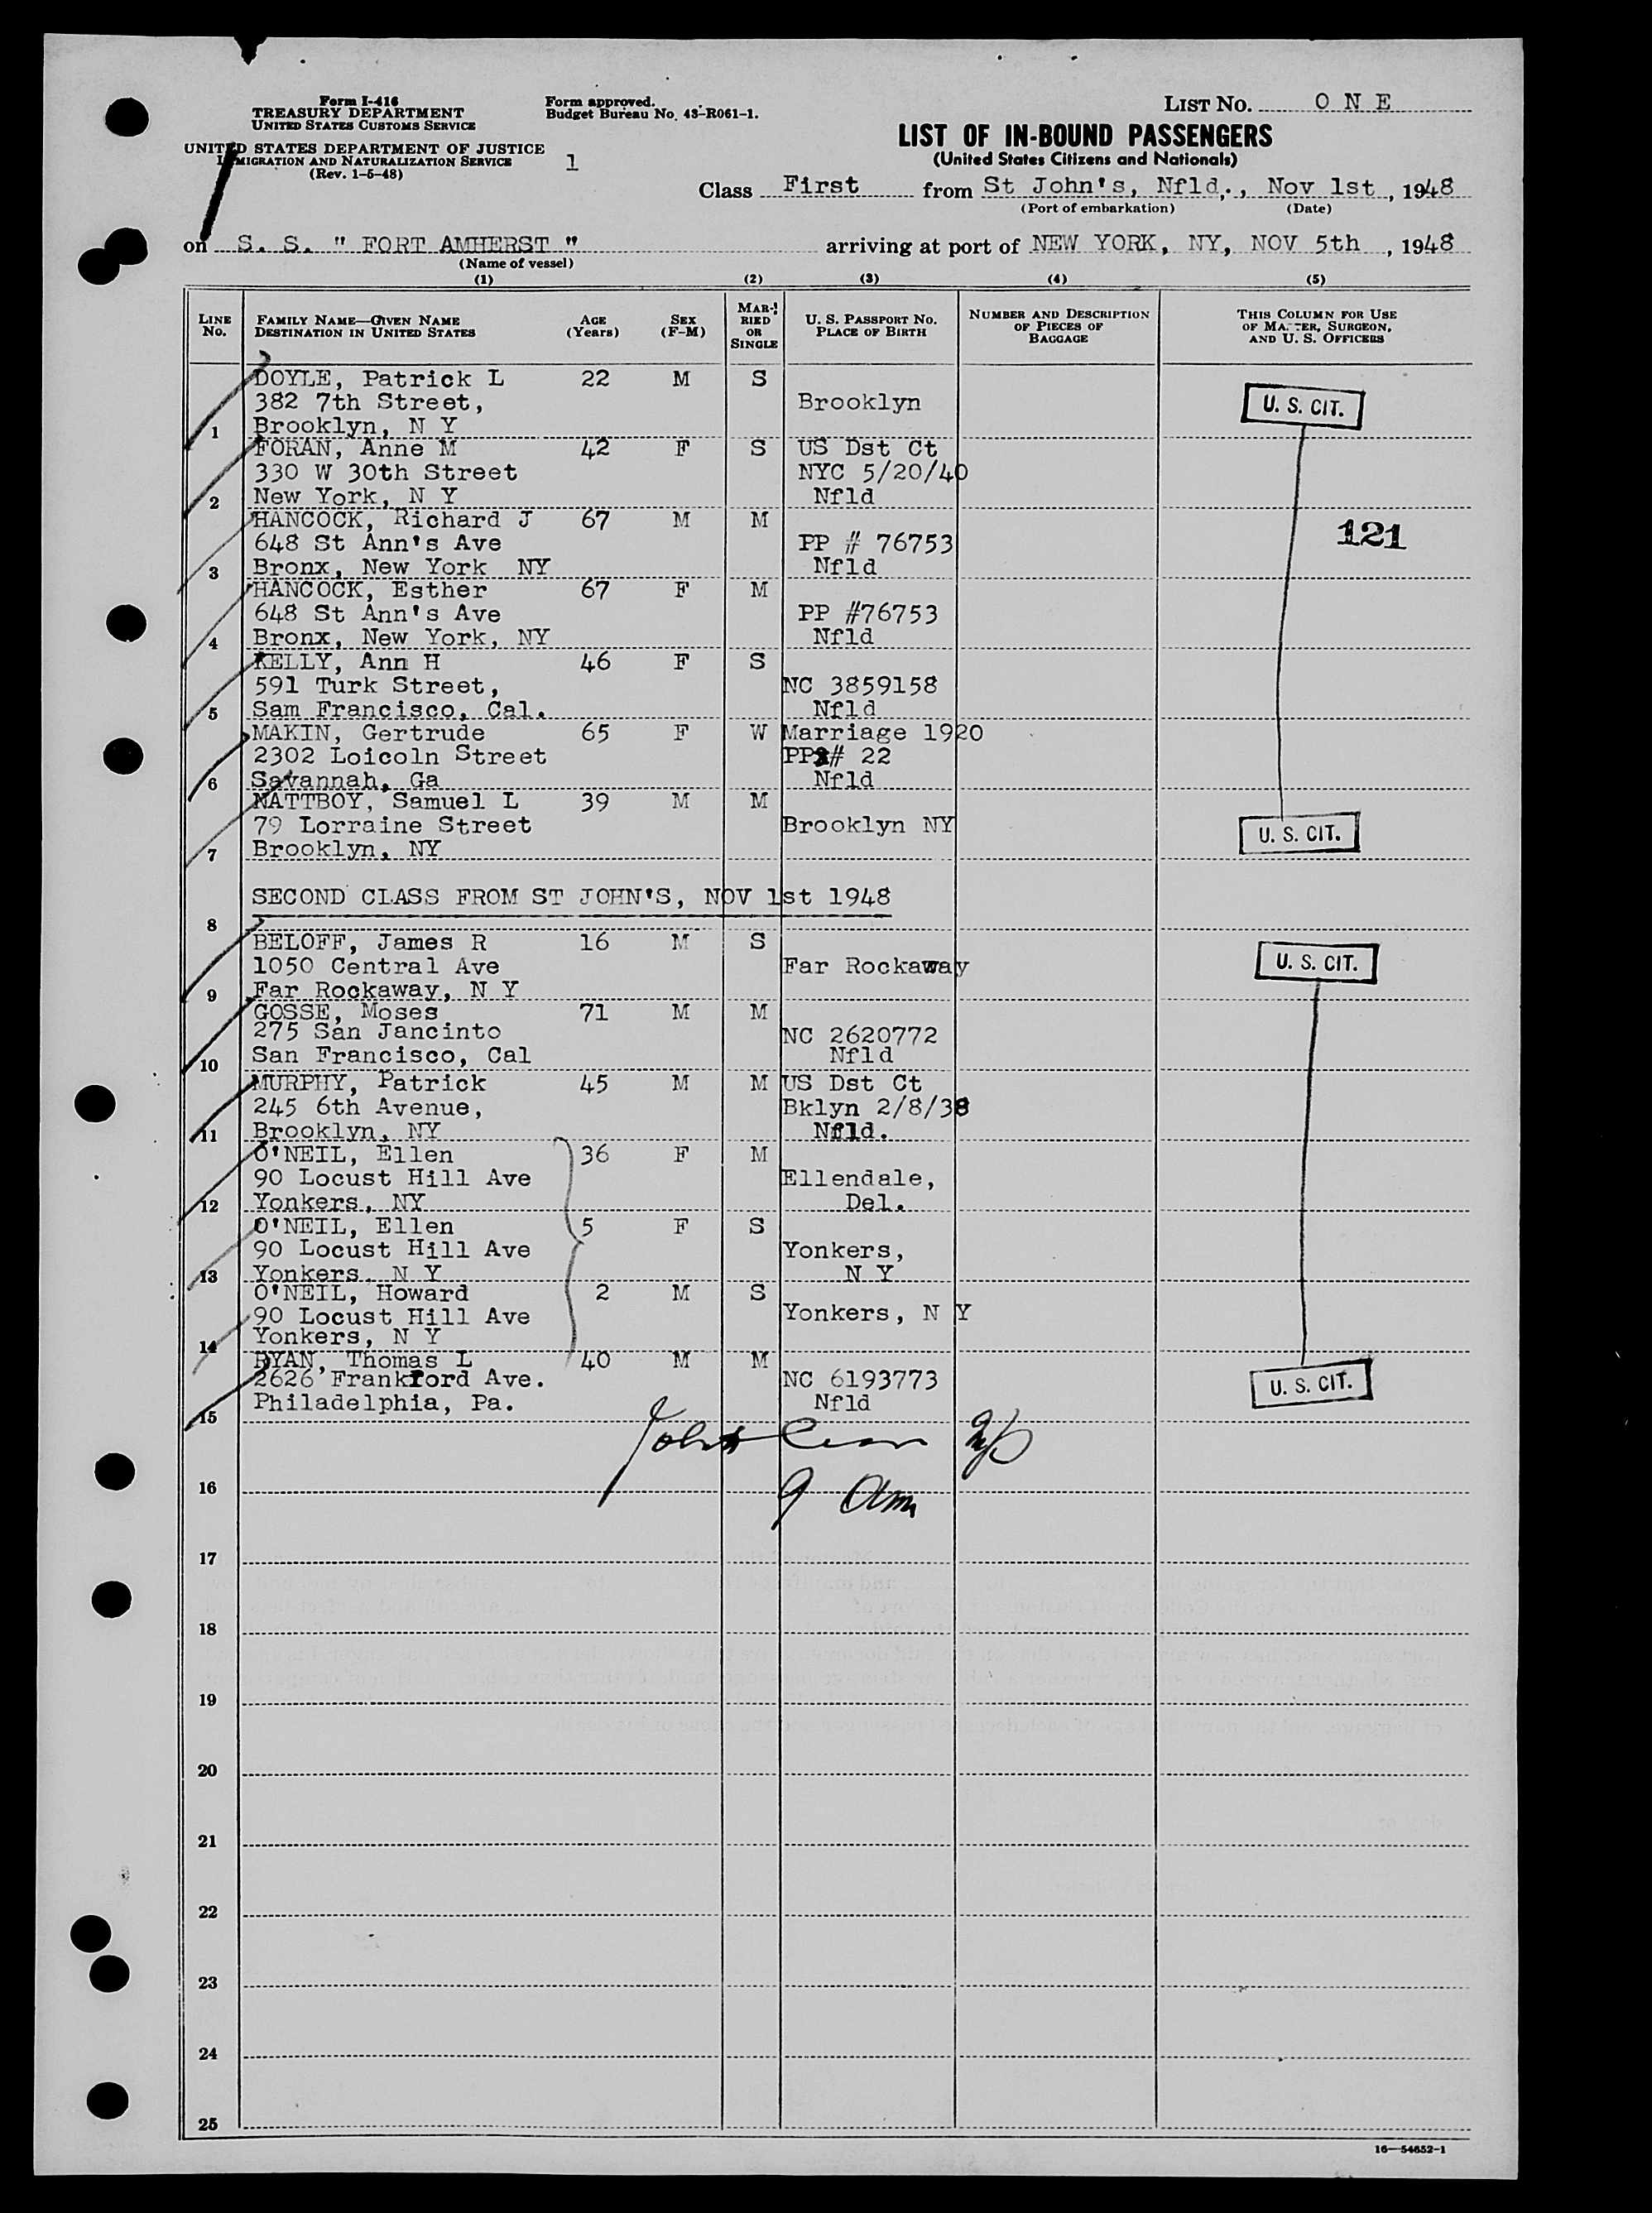 Form I-416
TREASURY DEPARTMENT
UNITED STATES CUSTOMS SERVICE
UNITED STATES DEPARTMENT OF JUSTICE
IMMIGRATION AND NATURALIZATION SERVICE
(Rev. 1-5-48)
Form approved.
Budget Bureau No. 43-R061-1.
1
LIST NO. O N E
LIST OF IN-BOUND PASSENGERS
(United States Citizens and Nationals)
Class First from St John's, Nfld., Nov 1st, 1948
(Port of embarkation) (Date)
on S. S. " FORT AMHERST " arriving at port of NEW YORK, NY, NOV 5th, 1948
(Name of vessel)
(1) (2) (3) (4) (5)
LINE NO.
FAMILY NAME—GIVEN NAME
DESTINATION IN UNITED STATES
AGE (Years)
SEX (F-M)
MARRIED OR SINGLE
U. S. PASSPORT NO.
PLACE OF BIRTH
NUMBER AND DESCRIPTION OF PIECES OF BAGGAGE
THIS COLUMN FOR USE OF MASTER, SURGEON, AND U. S. OFFICERS
DOYLE, Patrick L 22 M S
382 7th Street, Brooklyn U. S. CIT.
1 Brooklyn, N Y
FORAN, Anne M 42 F S US Dst Ct
330 W 30th Street NYC 5/20/40
2 New York, N Y Nfld
HANCOCK, Richard J 67 M M 121
648 St Ann's Ave PP # 76753
3 Bronx, New York NY Nfld
HANCOCK, Esther 67 F M
648 St Ann's Ave PP #76753
4 Bronx, New York, NY Nfld
KELLY, Ann H 46 F S
591 Turk Street, NC 3859158
5 Sam Francisco, Cal. Nfld
MAKIN, Gertrude 65 F W Marriage 1920
2302 Loicoln Street PP# 22
6 Savannah, Ga Nfld
NATTBOY, Samuel L 39 M M
79 Lorraine Street Brooklyn NY U. S. CIT.
7 Brooklyn, NY
SECOND CLASS FROM ST JOHN'S, NOV 1st 1948
8
BELOFF, James R 16 M S
1050 Central Ave Far Rockaway U. S. CIT.
9 Far Rockaway, N Y
GOSSE, Moses 71 M M
275 San Jancinto NC 2620772
10 San Francisco, Cal Nfld
MURPHY, Patrick 45 M M US Dst Ct
245 6th Avenue, Bklyn 2/8/38
11 Brooklyn, NY Nfld.
O'NEIL, Ellen 36 F M
90 Locust Hill Ave Ellendale,
12 Yonkers, NY Del.
O'NEIL, Ellen 5 F S
90 Locust Hill Ave Yonkers,
13 Yonkers, N Y N Y
O'NEIL, Howard 2 M S
90 Locust Hill Ave Yonkers, N Y
14 Yonkers, N Y
RYAN, Thomas L 40 M M
2626 Frankford Ave. NC 6193773 U. S. CIT.
15 Philadelphia, Pa. Nfld
John
16
9 am
17
18
19
20
21
22
23
24
25
16—54652-1